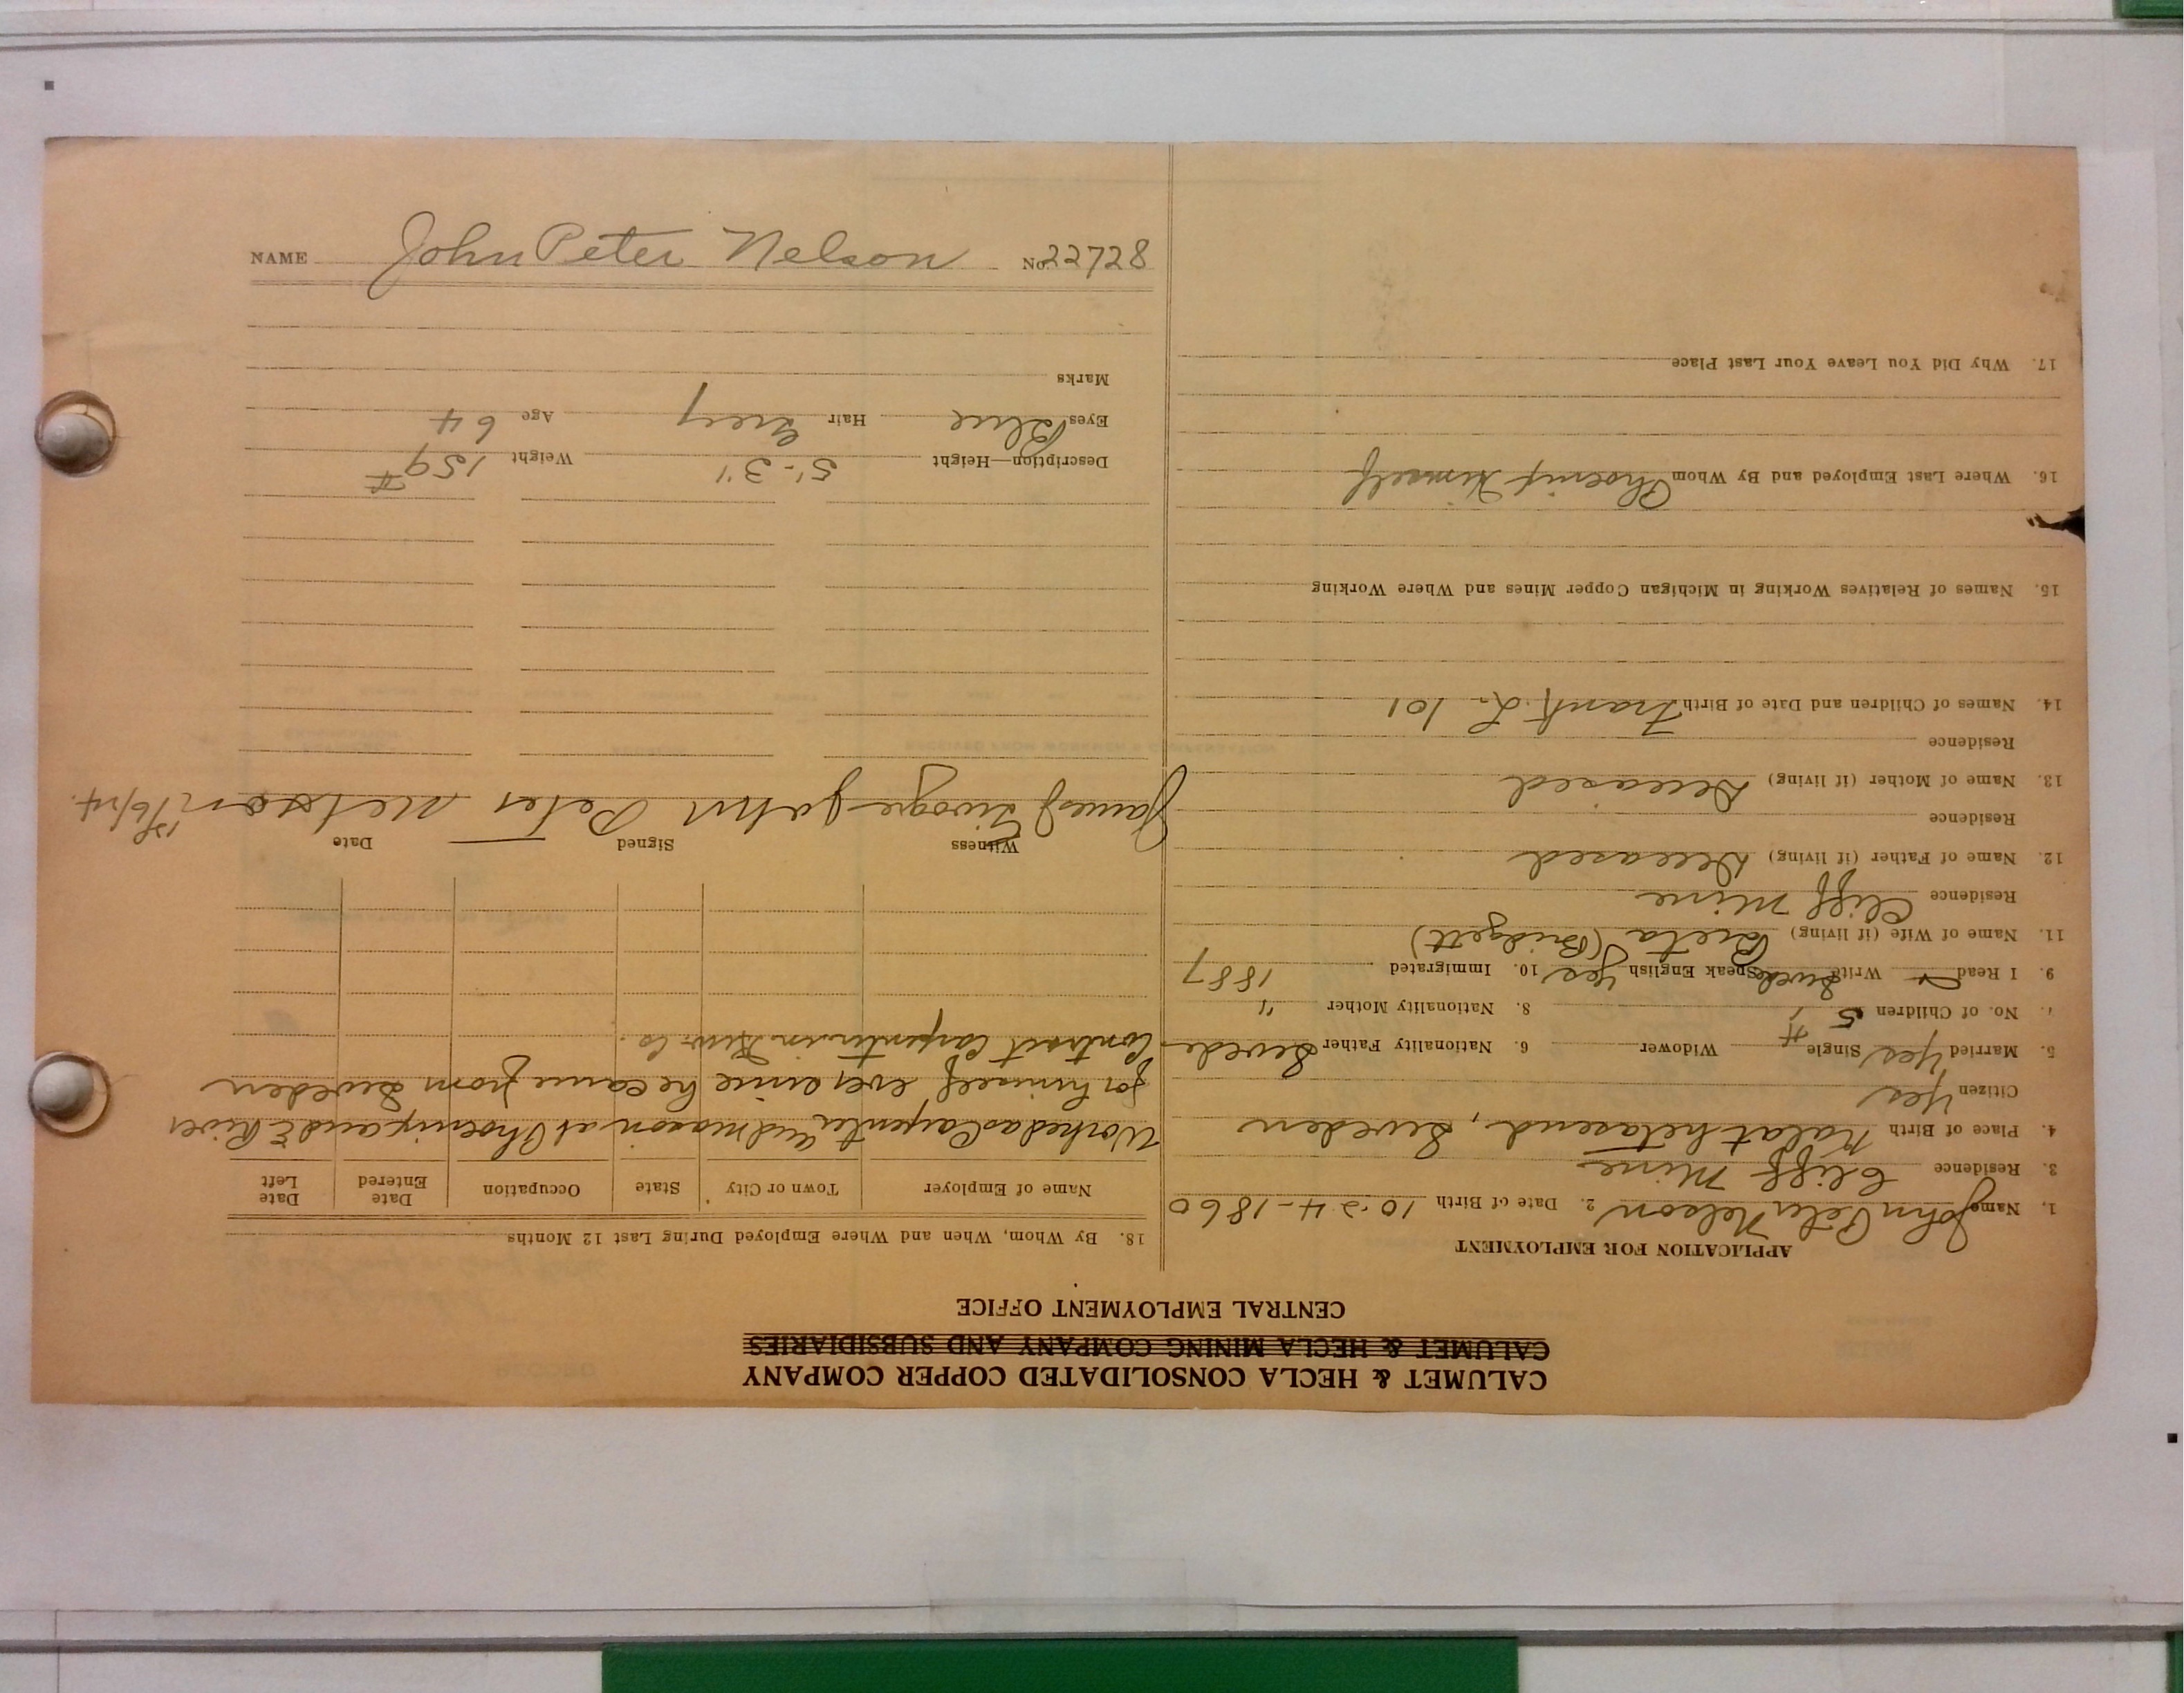 CALUMET & HECLA CONSOLIDATED COPPER COMPANY
CALUMET & HECLA MINING COMPANY AND SUBSIDIARIES
CENTRAL EMPLOYMENT OFFICE
APPLICATION FOR EMPLOYMENT
1. Name John Peter Nelson 2. Date of Birth 10-24-1860
3. Residence Cliff Mine
4. Place of Birth Sweden
Citizen Yes
5. Married Yes Single Widower 6. Nationality Father Swede
7. No. of Children 5 8. Nationality Mother "
9. I Read Write Swede Speak English Yes 10. Immigrated 1887
11. Name of Wife (if living) (Bridgett)
Residence Cliff Mine
12. Name of Father (if living) Deceased
Residence
13. Name of Mother (if living) Deceased
Residence
14. Names of Children and Date of Birth Frank L. 101
15. Names of Relatives Working in Michigan Copper Mines and Where Working
16. Where Last Employed and By Whom Phoenix Himself
17. Why Did You Leave Your Last Place
18. By Whom, When and Where Employed During Last 12 Months
Name of Employer Town or City State Occupation Date Entered Date Left
Worked as Carpenter and mason at Phoenix and E River
for himself ever since he came from Sweden
Contract Carpenter in Kew. Co.
Witness Signed Date
James John Peter Nelson /6/24.
Description—Height 5'-3" Weight 159 #
Eyes Blue Hair Grey Age 64
Marks
NAME John Peter Nelson No. 22728